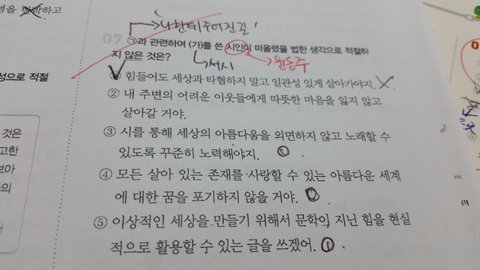 나한테 주어진 길!
07
㉠과 관련하여 (가)를 쓴 시인이 떠올렸을 법한 생각으로 적절하
지 않은 것은?
서시
윤동주
힘들어도 세상과 타협하지 말고 일관성 있게 살아가야지.
② 내 주변의 어려운 이웃들에게 따뜻한 마음을 잃지 않고
살아갈 거야.
③ 시를 통해 세상의 아름다움을 외면하지 않고 노래할 수
있도록 꾸준히 노력해야지.
④ 모든 살아 있는 존재를 사랑할 수 있는 아름다운 세계
에 대한 꿈을 포기하지 않을 거야.
⑤ 이상적인 세상을 만들기 위해서 문학이 지닌 힘을 현실
적으로 활용할 수 있는 글을 쓰겠어.
하고
성으로 적절
것은
고한
보아